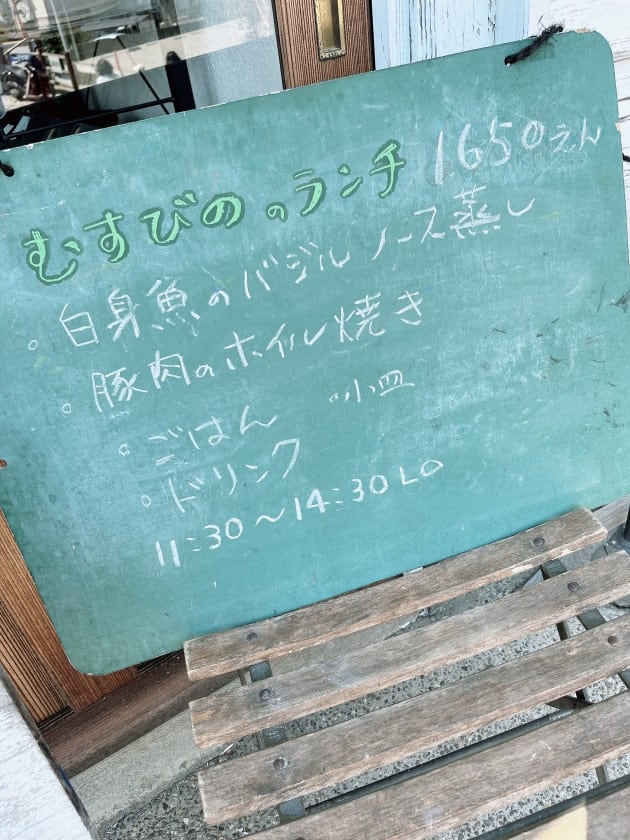 むすびの のランチ 1650えん
。白身魚のバジルソース蒸し
。豚肉のホイル焼き
。ごはん 。小皿
。ドリンク
11:30～14:30 LO